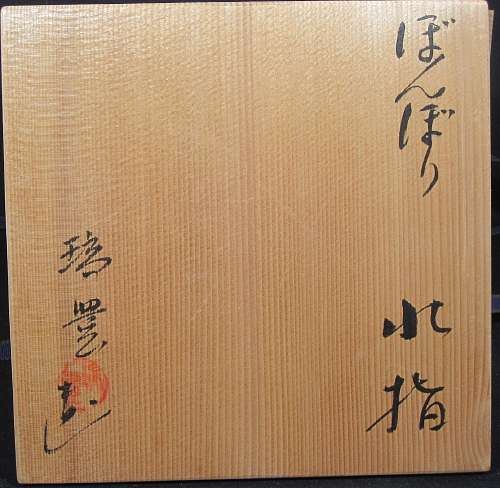 ぼんぼり 水指
瑞豊